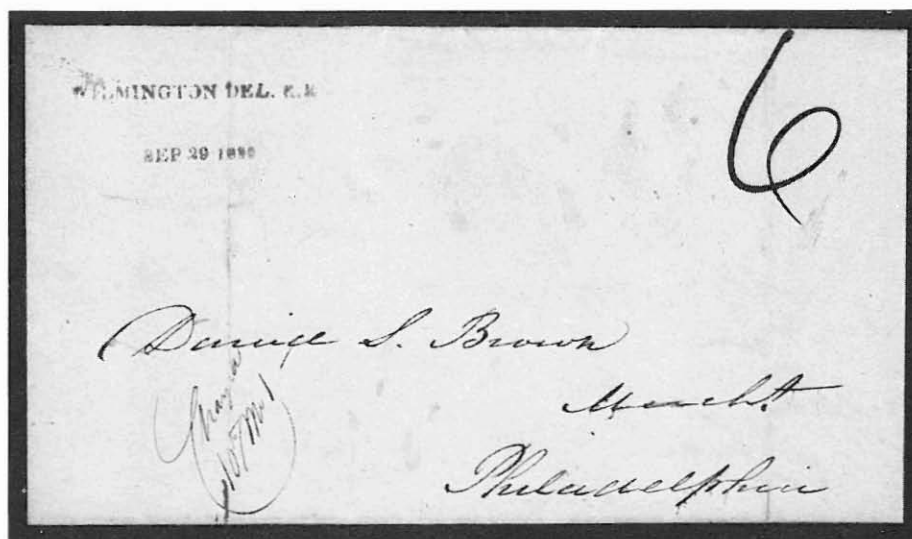 WILMINGTON DEL. R.R
SEP 29
6
Daniel S. Brown
Mercht.
Philadelphia